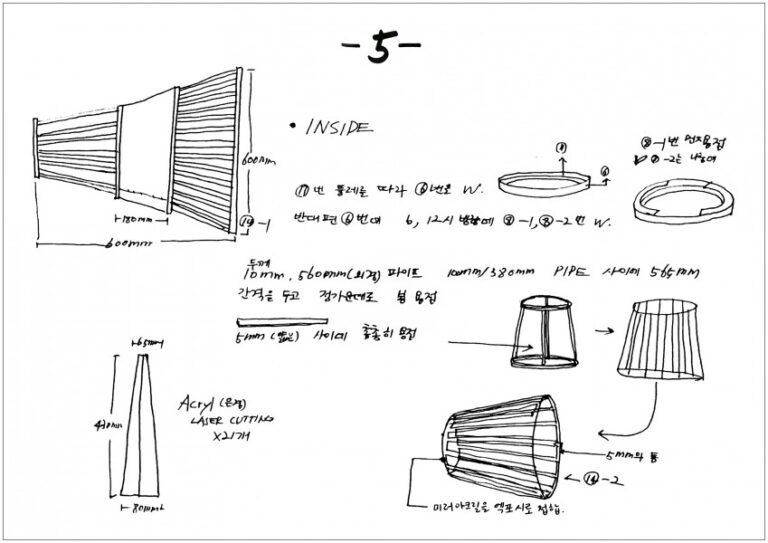 -5-
600mm
180mm
600mm
⑭-1
• INSIDE
⑰번 둘레를 따라 ⑥번으로 W.
반대편 ⑥번에 6, 12시 방향에 ⑧-1, ⑧-2 번 W.
⑧
⑥
⑧-1번 먼저용접
⑧-2는 나중에
두께
10mm, 560mm(외경) 파이프 10mm/380mm PIPE 사이에 565mm
간격을 두고 정가운데로 봉 용접
5mm 사이에 촘촘히 용접
65mm
430mm
80mm
Acryl
LASER CUTTING
X21개
5mm의 틈
⑭-2
미러아크릴을 엑포시로 접합.